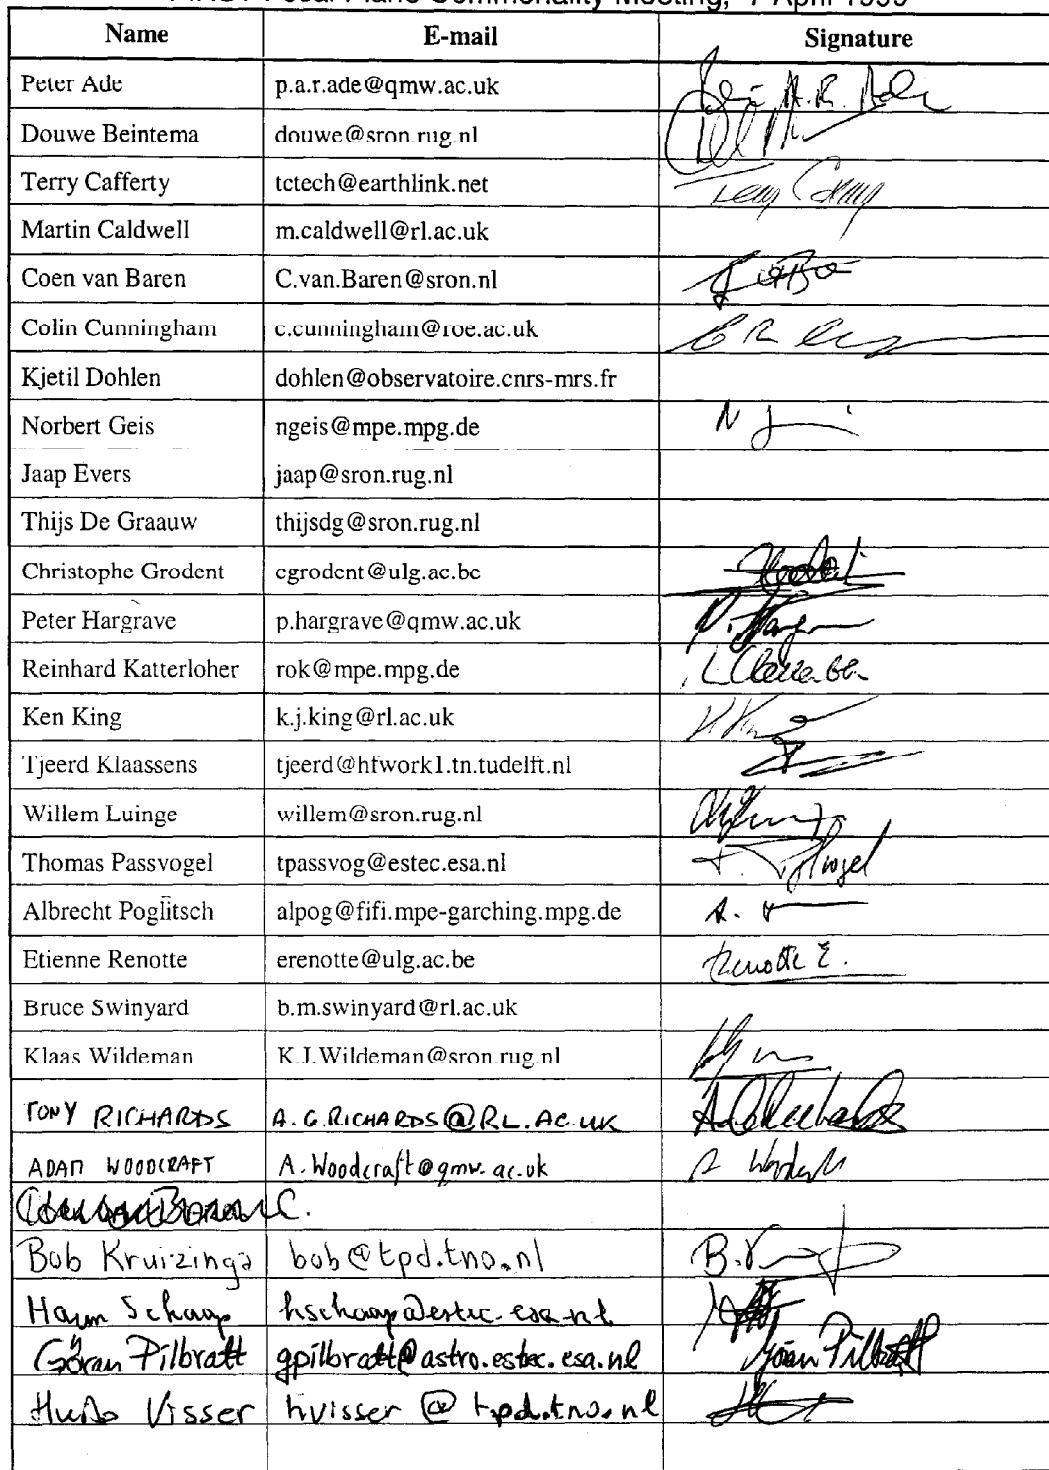 Focal Plane Commonality Meeting, 7 April 1999
Name E-mail Signature
Peter Ade p.a.r.ade@qmw.ac.uk
Douwe Beintema douwe@sron.rug.nl
Terry Cafferty tctech@earthlink.net
Martin Caldwell m.caldwell@rl.ac.uk
Coen van Baren C.van.Baren@sron.nl
Colin Cunningham c.cunningham@roe.ac.uk
Kjetil Dohlen dohlen@observatoire.cnrs-mrs.fr
Norbert Geis ngeis@mpe.mpg.de
Jaap Evers jaap@sron.rug.nl
Thijs De Graauw thijsdg@sron.rug.nl
Christophe Grodent cgrodent@ulg.ac.be
Peter Hargrave p.hargrave@qmw.ac.uk
Reinhard Katterloher rok@mpe.mpg.de
Ken King k.j.king@rl.ac.uk
Tjeerd Klaassens tjeerd@hfwork1.tn.tudelft.nl
Willem Luinge willem@sron.rug.nl
Thomas Passvogel tpassvog@estec.esa.nl
Albrecht Poglitsch alpog@fifi.mpe-garching.mpg.de
Etienne Renotte erenotte@ulg.ac.be Renotte E.
Bruce Swinyard b.m.swinyard@rl.ac.uk
Klaas Wildeman K.J.Wildeman@sron.rug.nl
TONY RICHARDS A.G.RICHARDS@RL.AC.UK
ADAM WOODCRAFT A.Woodcraft@qmw.ac.uk
Bob Kruizinga bob@tpd.tno.nl
Harm Schaap hschaap@estec.esa.nl
Göran Pilbratt gpilbratt@astro.estec.esa.nl Göran Pilbratt
Huib Visser hvisser @ tpd.tno.nl